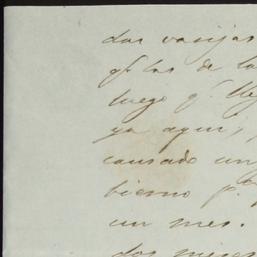 dos vasijas
qe las de la
luego qe lle
ya aqui,
causado un
bierno p.
un mes.
dos meses